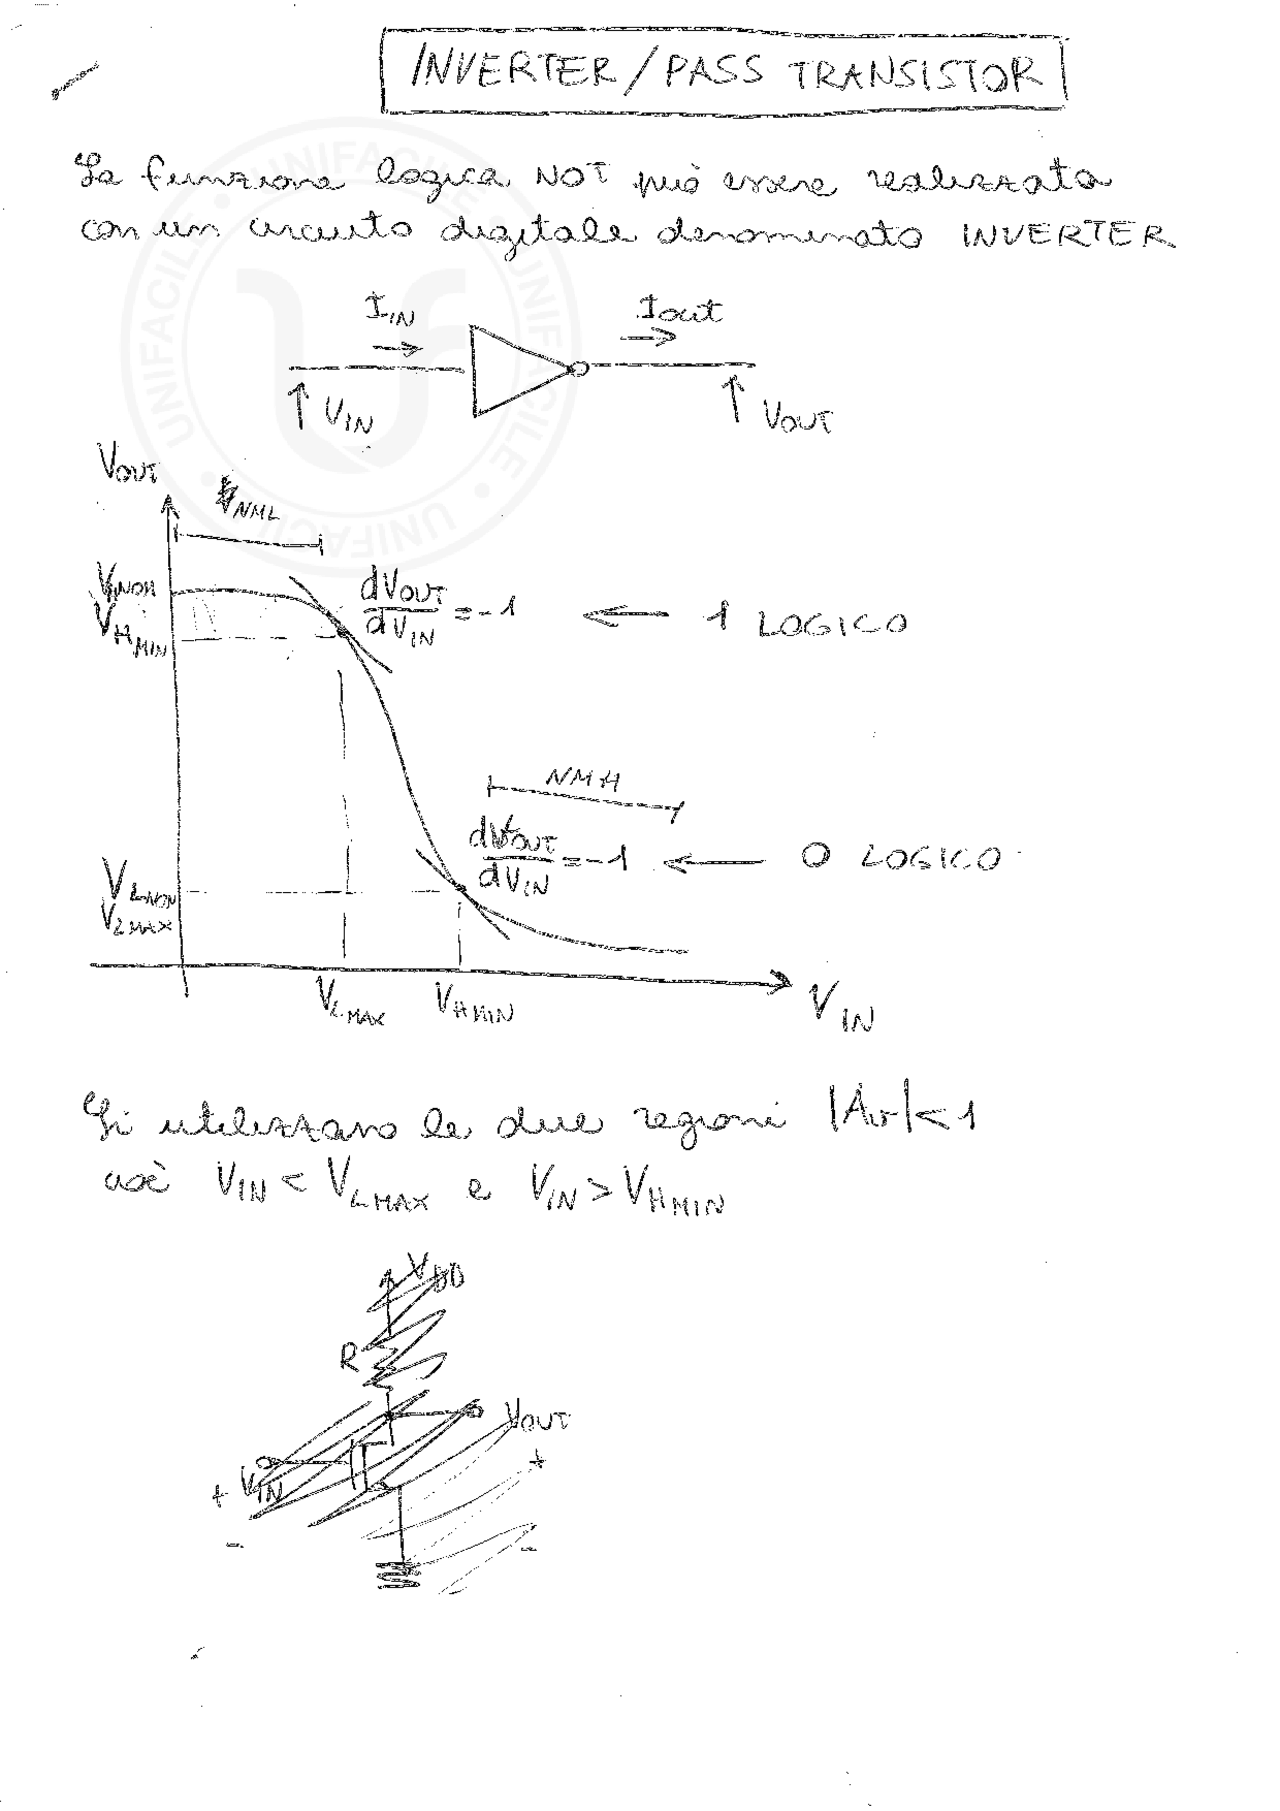 INVERTER/PASS TRANSISTOR
La funzione logica NOT può essere realizzata
con un circuito digitale denominato INVERTER
I_IN
I_OUT
V_IN
V_OUT
V_OUT
NML
V_HNOM
V_HMIN
dV_OUT/dV_IN = -1 ← 1 LOGICO
NMH
dV_OUT/dV_IN = -1 ← 0 LOGICO
V_LNOM
V_LMAX
V_LMAX
V_HMIN
V_IN
Si utilizzano le due regioni |Av|<1
cioè V_IN < V_LMAX e V_IN > V_HMIN
V_DD
R
V_OUT
+
+ V_IN
-
-
UNIFACILE • UNIFACILE • UNIFACILE • UNIFACILE •